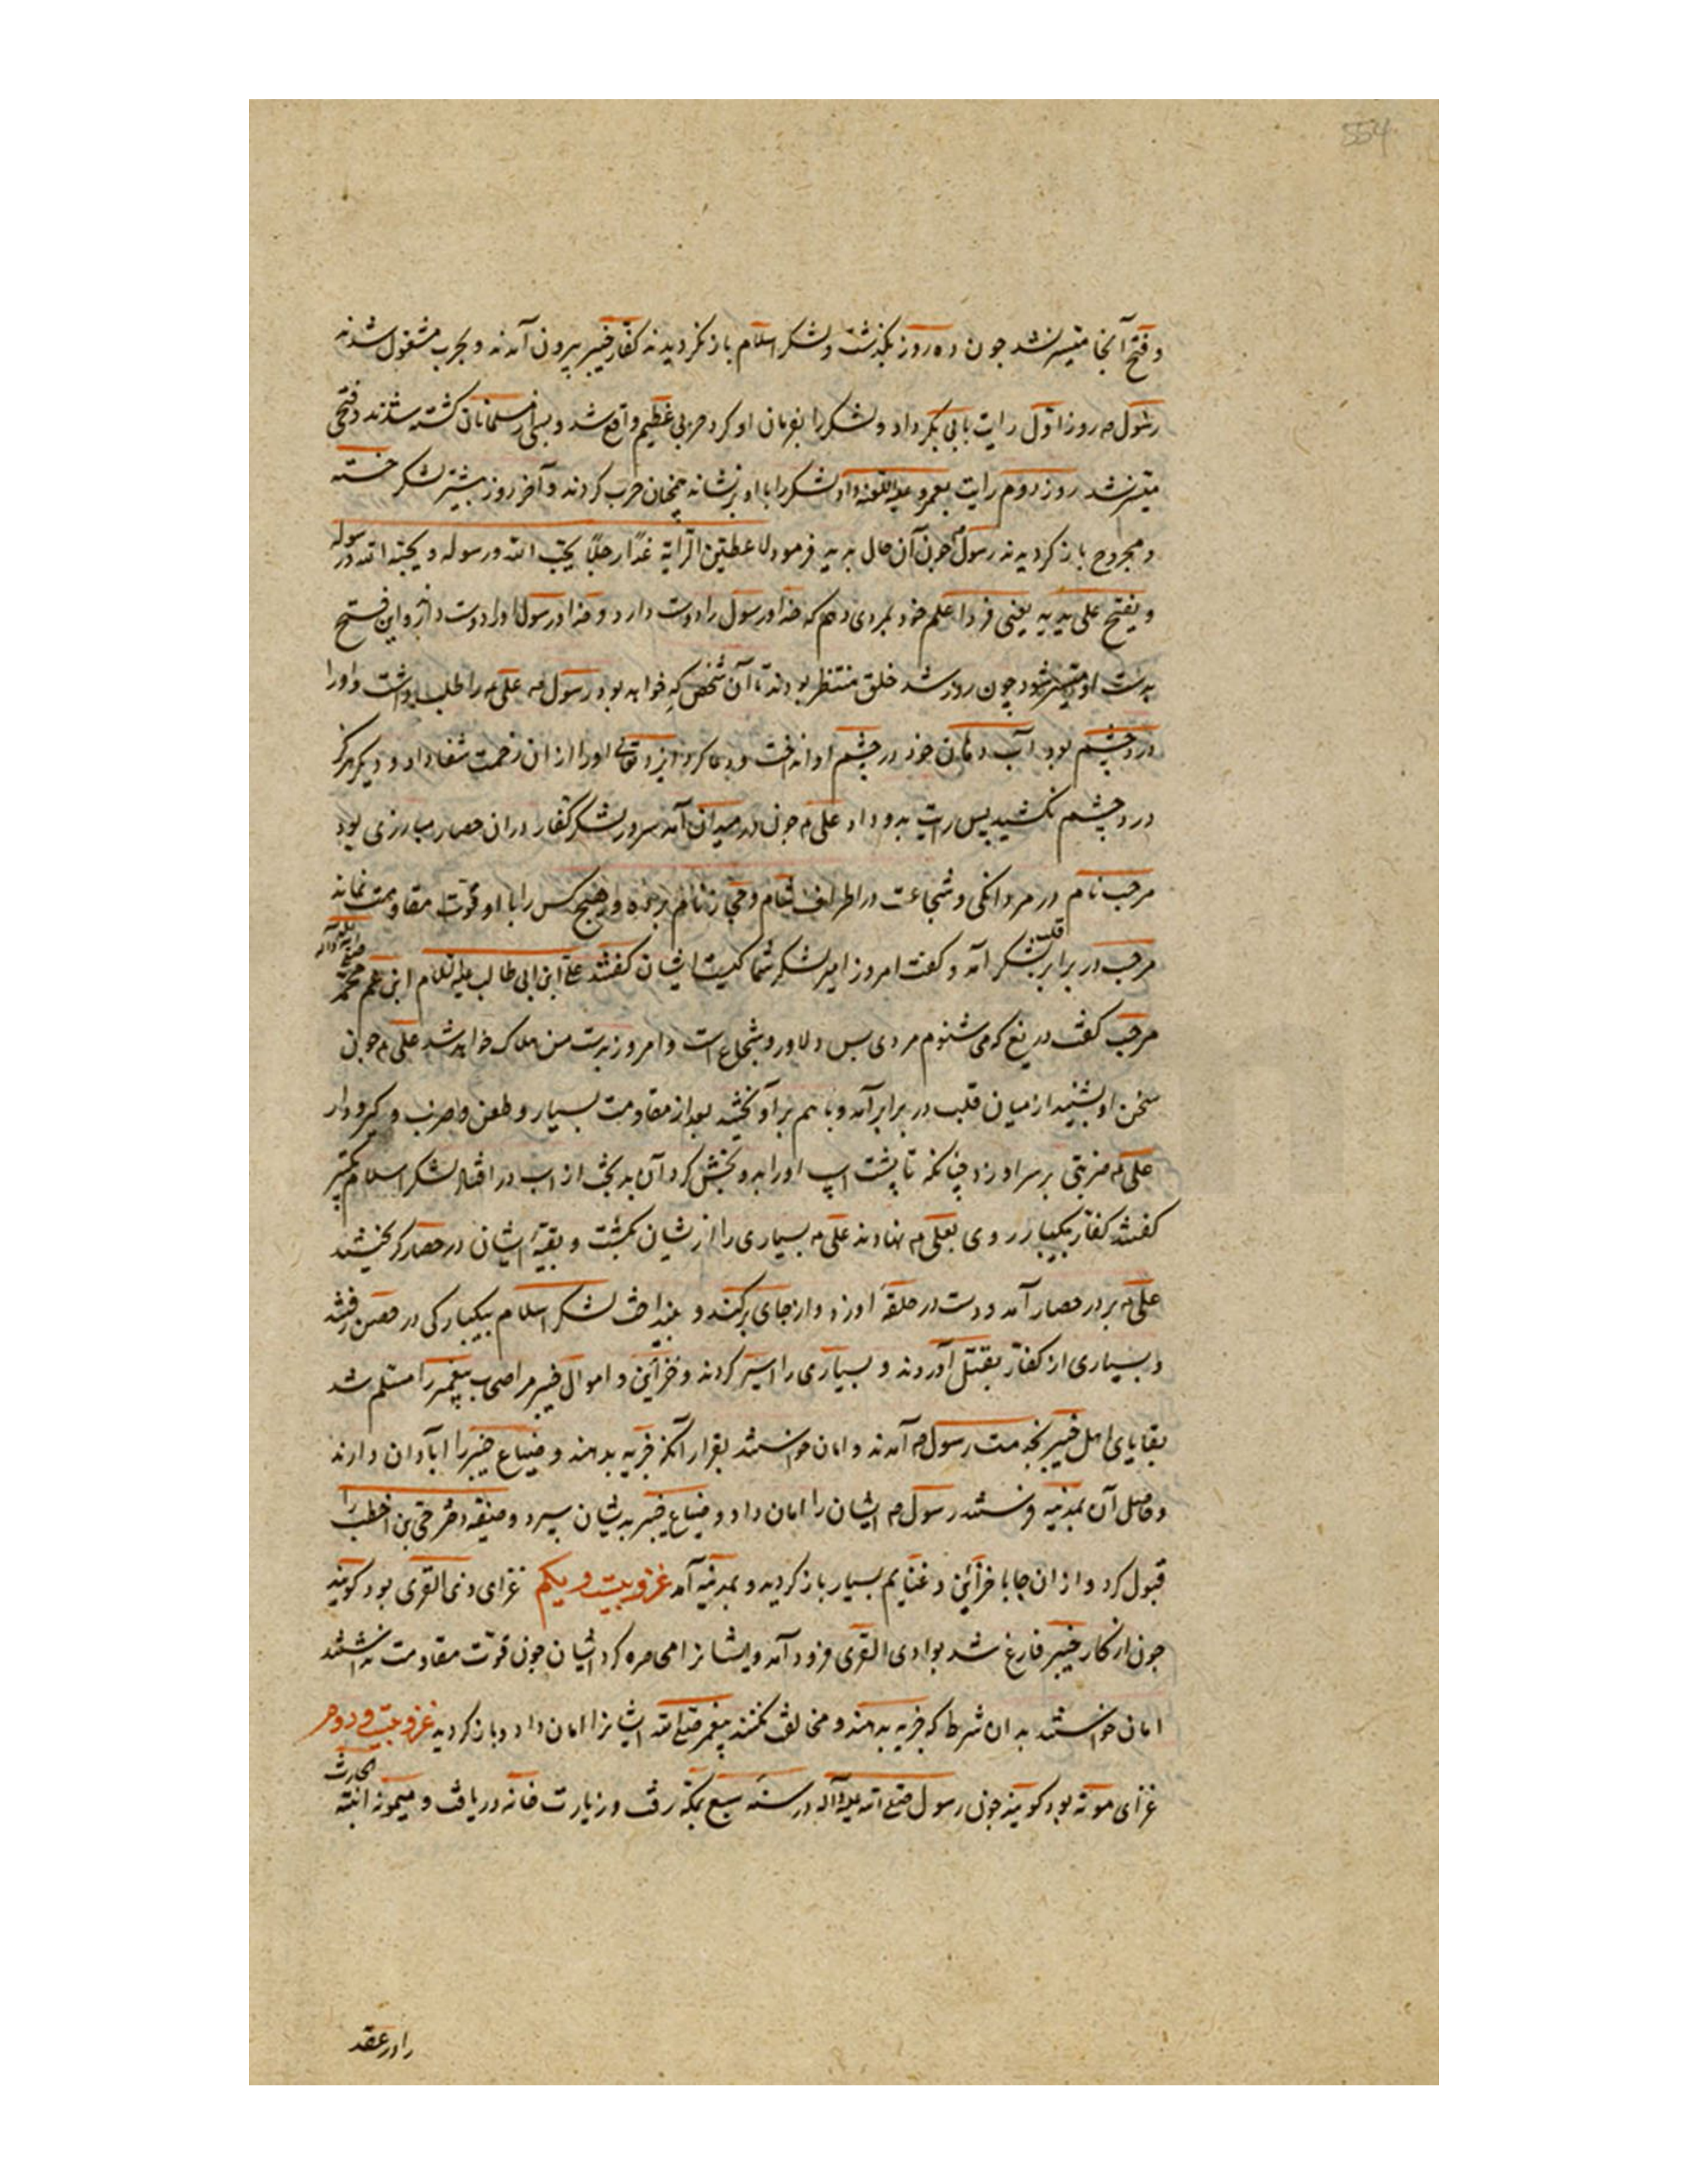 554
و فتح آنجا میسر نشد جون ده روز بکذشت و لشکر اسلام باز نکردیدند کفار خیبر بیرون آمدند و بحرب مشغول شدند
رسول م روز اول رایت بابی بکر داد و لشکر را بفرمان او کرد حربی عظیم واقع شد و بسی از مسلمانان کشته شدند و فتحی
میسر نشد روز دوم رایت بعمر داد و لشکر را با او بنشاند همچنان حرب کردند و آخر روز بیشتر لشکر خسته
و مجروح باز کردیدند رسول م جون آن حال بدید فرمود لاعطین الرایة غدا رجلا یحب الله و رسوله و یحبه الله و رسوله
و یفتح علی یدیه یعنی فردا علم خود بمردی دهم که خدا و رسول را دوست دارد و خدا و رسول او را دوست دارد و این فتح
بدست او میسر شود چون روز شد خلق منتظر بودند تا آن شخص که خواهد بود رسول م علی م را طلب داشت و او را
درد چشم بود آب دهان خود در چشم او انداخت و دعا کرد ایزد تعالی او را از ان زحمت شفا داد و دیکر هرکز
درد چشم نکشید پس رایت بدو داد علی م جون در میدان آمد سرور لشکر کفار دران حصار مبارزی بود
مرحب نام در مردانکی و شجاعت در اطراف شام و حجاز نام برده و هیچ کس را با او قوت مقاومت نماند
مرحب در برابر قلب لشکر آمد و کفت امروز امیر لشکر شما کیست ایشان کفتند علی ابن ابی طالب علیه السلام ابن عم محمد صلی الله علیه و آله
مرحب کفت دریغ که می شنوم مردی بس دلاور و شجاع است و امروز بدست من هلاک خواهد شد علی م جون
سخن او بشنید از میان قلب در برابر آمد و با هم بر آویختند بعد از مقاومت بسیار و طعن و ضرب و کیر و دار
علی م ضربتی بر سر او زد چنانکه تا پشت اسپ او را بدو بخش کرد آن بدبخت از اسب در افتاد لشکر اسلام تکبیر
کفتند کفار بیکبار روی بعلی م نهادند علی م بسیاری را از یشان بکشت و بقیهٔ ایشان در حصار کریختند
علی م بر در حصار آمد و دست در حلقهٔ او زد و از جای برکند و بینداخت لشکر اسلام بیکبارکی در حصن رفتند
و بسیاری از کفار بقتل آوردند و بسیاری را اسیر کردند و خزائن و اموال خیبر مر اصحاب پیغمبر را مسلم شد
بقایای اهل خیبر بخدمت رسول م آمدند و امان خواستند بقرار آنکه جزیه بدهند و ضیاع خیبر را آبادان دارند
و حاصل آن بمدینه فرستند رسول م ایشان را امان داد و ضیاع خیبر بدیشان سپرد و صفیه دختر حی بن اخطب را
قبول کرد و از ان جا با خزائن و غنایم بسیار باز کردید و بمدینه آمد غزو بیست و یکم غزای وادی القری بود کویند
جون از کار خیبر فارغ شد بوادی القری فرود آمد و ایشانرا محاصره کرد ایشان جون قوت مقاومت نداشتند
امان خواستند بدان شرط که جزیه بدهند و مخالفت نکنند پیغمبر صلی الله ایشانرا امان داد و باز کردید غزو بیست و دوم
غزای موته بود کویند جون رسول صلی الله علیه و آله در سنه سبع بمکه رفت و زیارت خانه دریافت و میمونه ابنته الحارث
را در عقد